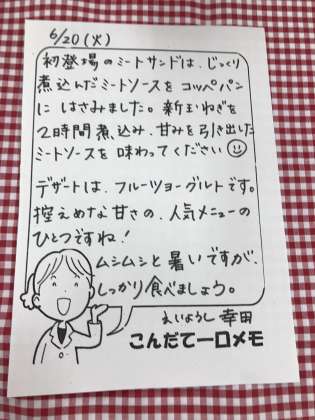 6/20(火)
初登場のミートサンドは、じっくり
煮込んだミートソースをコッペパン
にはさみました。新玉ねぎを
2時間煮込み、甘みを引き出した
ミートソースを味わってください
デザートは、フルーツヨーグルトです。
控えめな甘さの、人気メニューの
ひとつですね!
ムシムシと暑いですが、
しっかり食べましょう。
えいようし 幸田
こんだて一口メモ